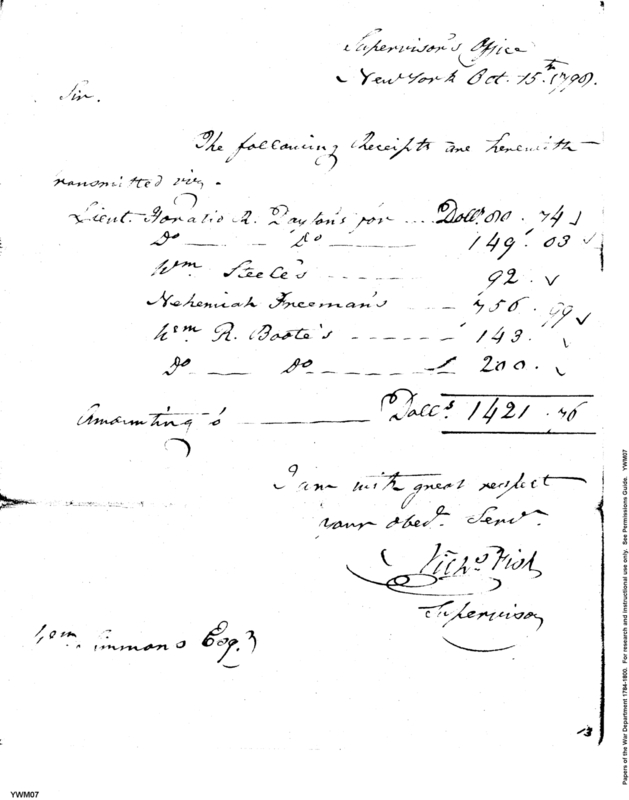 Supervisor's Office
New York Oct. 15th
Sir.
The following Receipts are herewith
transmitted viz.
Lieut. Horatio R. Dayton's for ... Dolls 80.74
Do ___ Do ___ 149.03
Wm Steele's ---- 92.
Nehemiah Freeman's --- 756.99
Wm R. Boote's ------ 143.
Do __ Do ______ 200.
Amounting to ______ Dolls. 1421.76
I am with great respect
your obed. Servt.
Nichs Fish
Supervisor
Wm. Simmons Esqr
13
YWM07
Papers of the War Department 1784-1800. For research and instructional use only. See Permissions Guide. YWM07